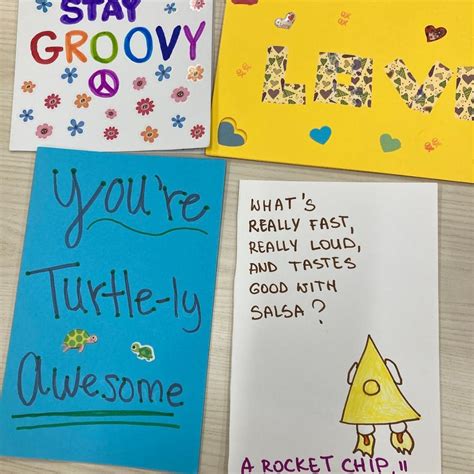 STAY
GROOVY
LOVE
You're
Turtle-ly
awesome
WHAT'S
REALLY FAST,
REALLY LOUD,
AND TASTES
GOOD WITH
SALSA?
A ROCKET CHIP!!